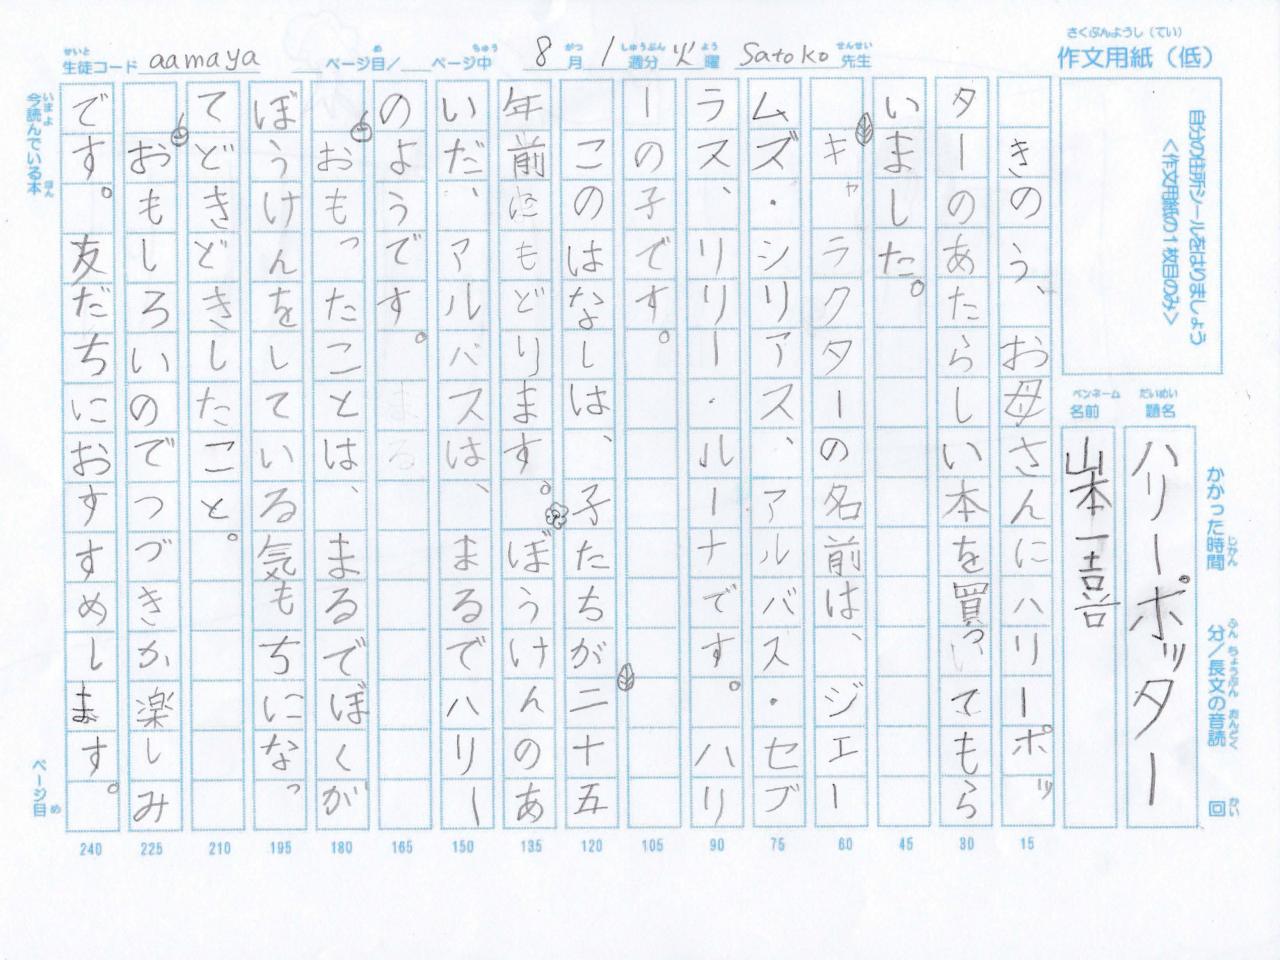 さくぶんようし（てい）
作文用紙（低）
せいと
生徒コード aamaya
ページ目/ ページ中
め
ちゅう
8月1週分火曜 Satoko先生
がつ
しゅうぶん
よう
せんせい
自分の住所シールをはりましょう
＜作文用紙の1枚目のみ＞
だいめい
題名
ハリーポッター
ペンネーム
名前
山本一喜
かかった時間 分/長文の音読 回
じかん
ふん
ちょうぶん
おんどく
かい
きのう、お母さんにハリーポッ
ターのあたらしい本を買ってもら
いました。
キャラクターの名前は、ジェー
ムズ・シリアス、アルバス・セブ
ラス、リリー・ルーナです。ハリ
ーの子です。
このはなしは、子たちが二十五
年前にもどります。ぼうけんのあ
いだ、アルバスは、まるでハリー
のようです。
おもったことは、まるでぼくが
ぼうけんをしている気もちになっ
てどきどきしたこと。
おもしろいのでつづきか楽しみ
です。友だちにおすすめします。
15
30
45
60
75
90
105
120
135
150
165
180
195
210
225
240
いまよ ほん
今読んでいる本
ページ目
め